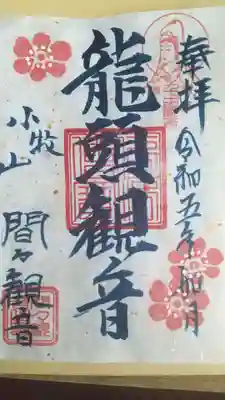 奉拝
令和五年如月
龍頭観音
小牧山
間々観音